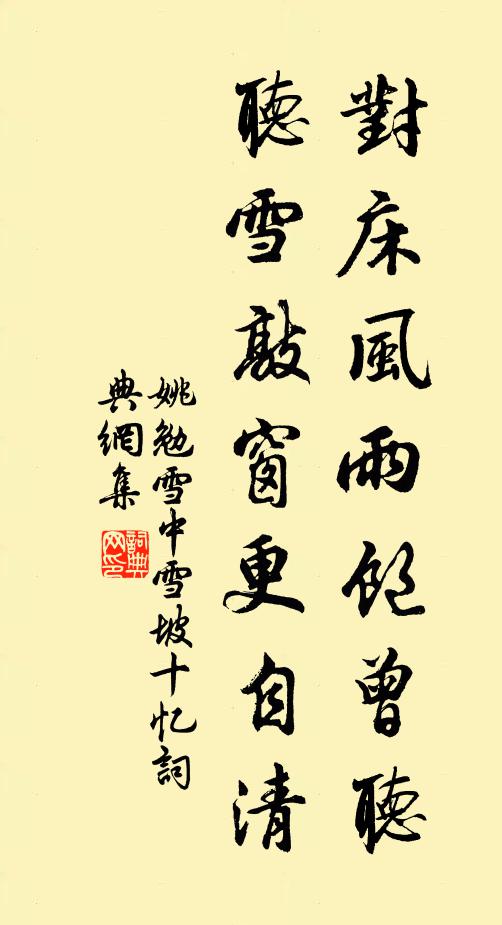 對床風雨飽曾聽
聽雪敲窗更自清
姚勉雪中雪坡十忆詞
典網集
詞典网印